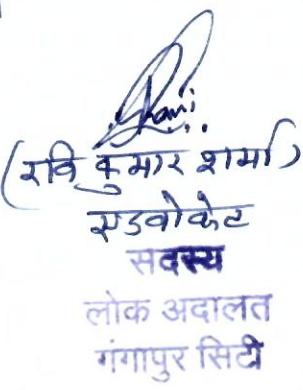 Ravi
(रवि कुमार शर्मा)
एडवोकेट
सदस्य
लोक अदालत
गंगापुर सिटी